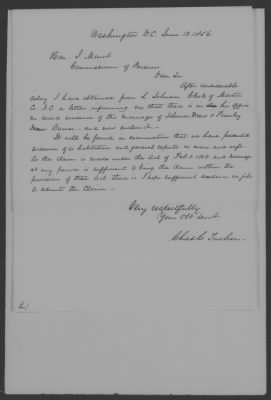 Washington D.C. June 13. 1856
Hon. J. Minot
Commissioner of Pensions
Dear Sir
After considerable
delay I have obtained from L. Johnson Clerk of Martin
Co. N.C. a letter informing me that there is in his office
no record evidence of the marriage of Solomon & Franky
and now enclose it.
It will be found on examination that we have presented
evidence of cohabitation and general repute as man and wife
As the claim is made under the Act of Feb 3. 1853 and marriage
at any period is sufficient to bring the claim within the
provision of that Act there is I hope sufficient evidence on file
to admit the claim.
Very respectfully
Your Obt Servt.
Chas. C. Tucker